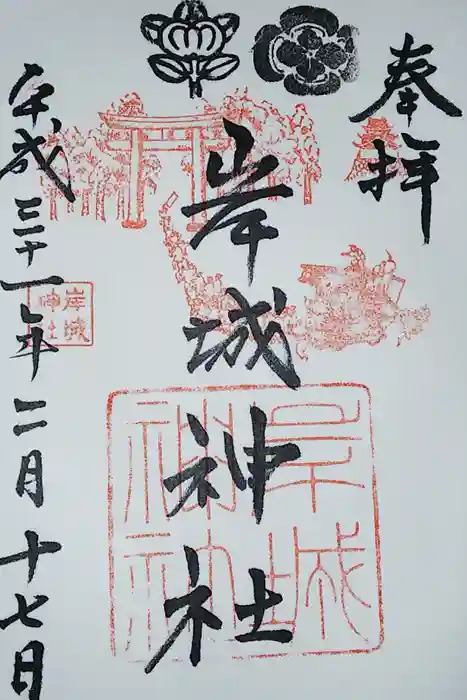 奉拝
岸城神社
平成三十一年二月十七日
岸城
神社
岸城
神社